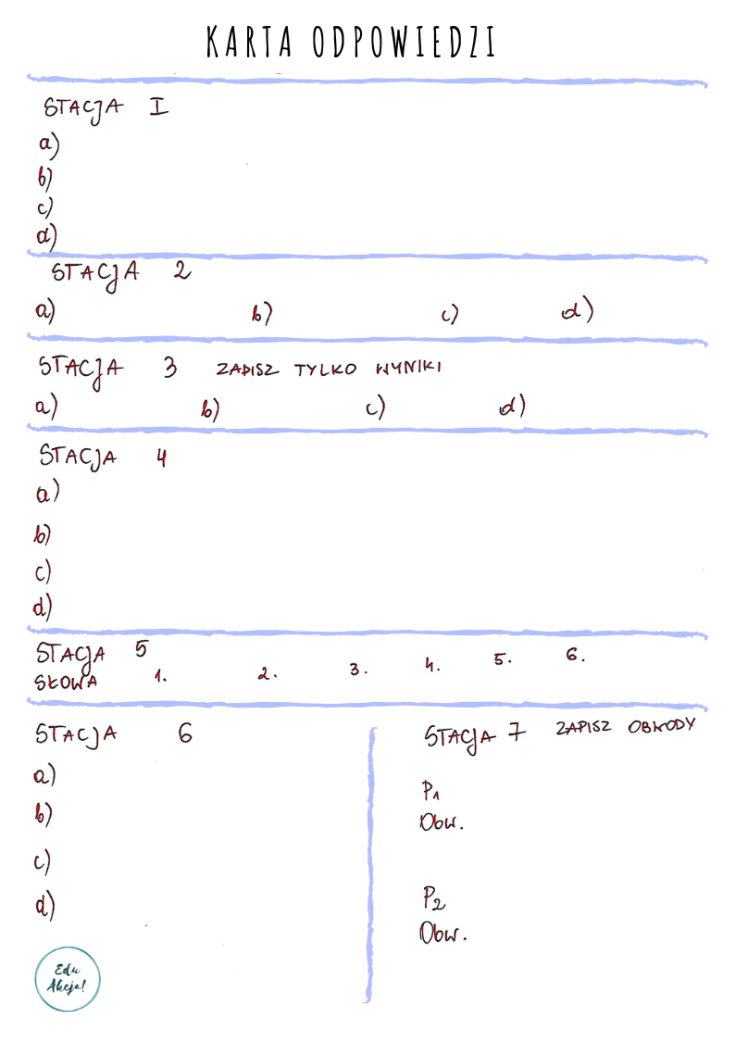 KARTA ODPOWIEDZI
STACJA I
a)
b)
c)
d)
STACJA 2
a) b) c) d)
STACJA 3 ZAPISZ TYLKO WYNIKI
a) b) c) d)
STACJA 4
a)
b)
c)
d)
STACJA 5
SŁOWA 1. 2. 3. 4. 5. 6.
STACJA 6
a)
b)
c)
d)
STACJA 7 ZAPISZ OBWODY
P1
Obw.
P2
Obw.
Edu
Akcja!